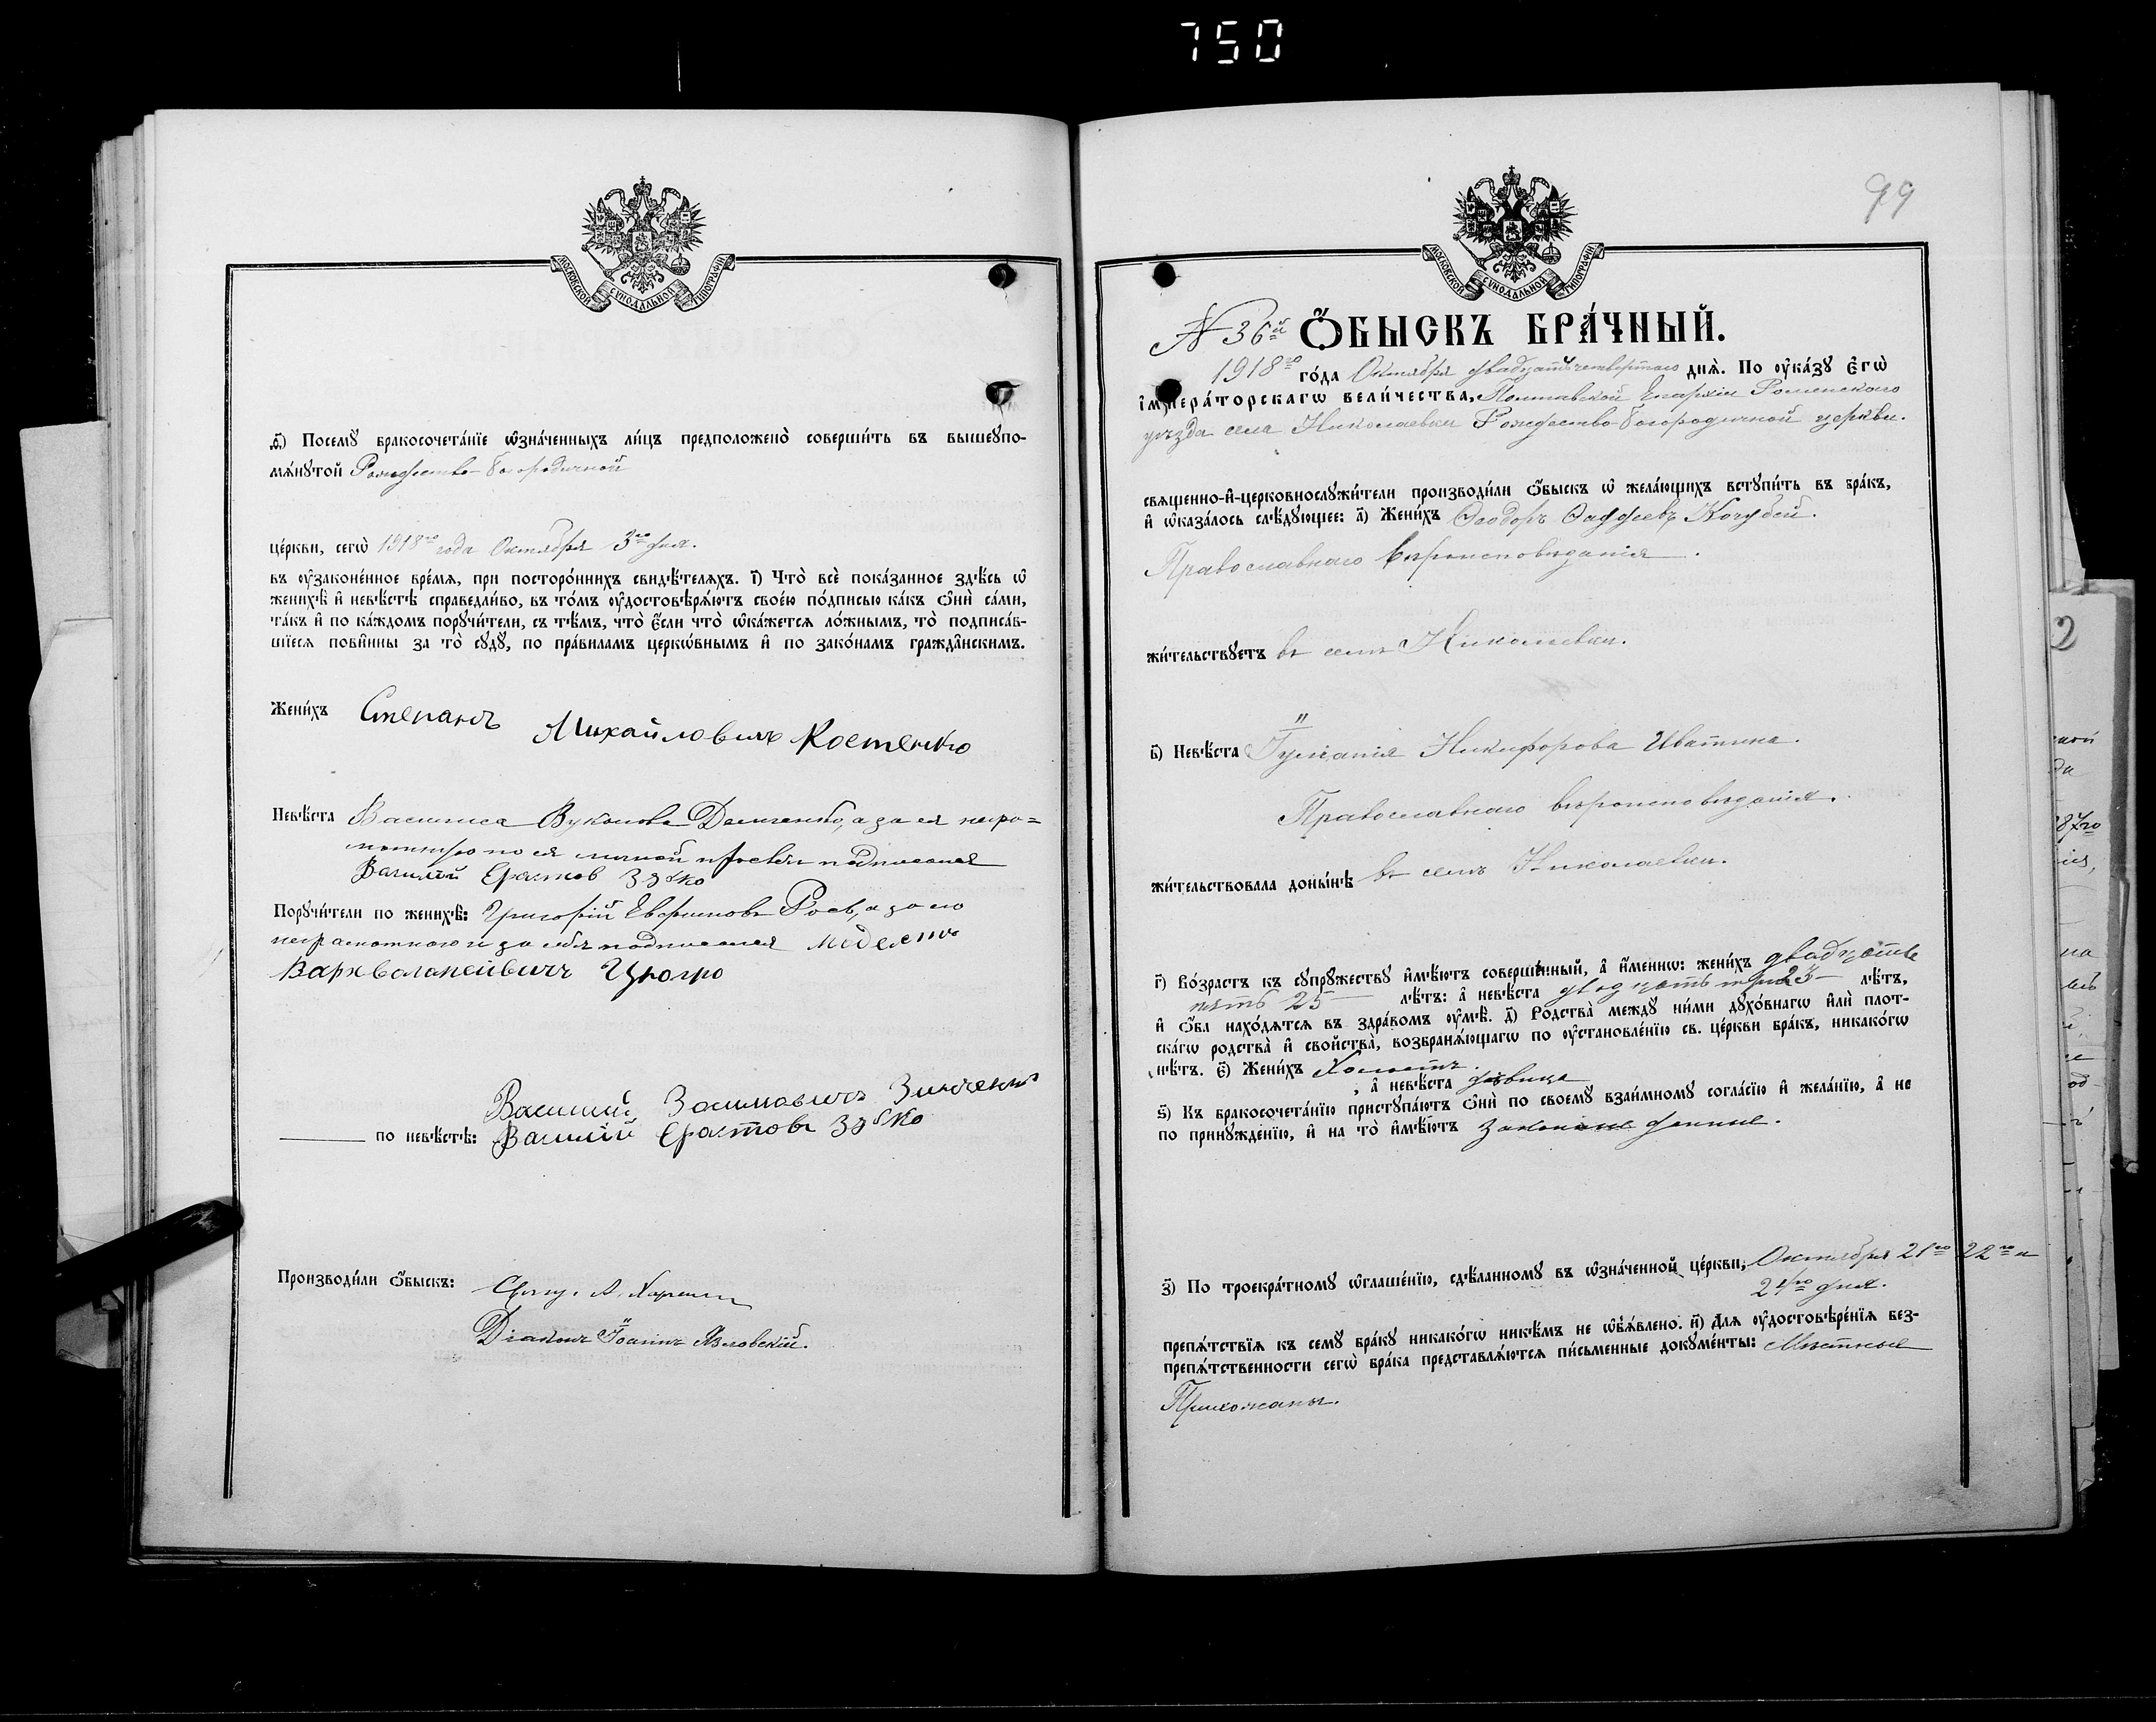 750
МОСКОВСКОЙ СѴНОДАЛЬНОЙ ТИПОГРАФІИ
ѳ҃) Посемꙋ̀ бракосочета́нїе ѡ҆зна́ченныхъ ли́цъ предположено̀ соверши́ть въ вышеꙋпо-
мѧ́нꙋтой Рождество-Богородичной
це́ркви, сегѡ̀ 1918го года Октября 3го дня.
въ ᲂу҆зако́ненное вре́мѧ, при посторо́ннихъ свидѣ́телѧхъ. і҃) Что̀ всѐ пока́занное здѣ́сь ѡ҆
женихѣ̀ и҆ невѣ́стѣ справедли́во, въ то́мъ ᲂу҆достовѣрѧ́ютъ свое́ю по́дписью ка́къ ѻ҆нѝ са́ми,
та́къ и҆ по ка́ждомъ порꙋчи́тели, съ тѣ́мъ, что̀ є҆́сли что̀ ѡ҆ка́жетсѧ ло́жнымъ, то̀ подписа́в-
шїесѧ пови́нны за то̀ сꙋдꙋ̀, по пра́виламъ церкѡ́внымъ и҆ по зако́намъ гражда́нскимъ.
Жени́хъ Степанъ
Михайловичъ Костенко
Невѣ́ста Василиса Вуколова Демченко, а за ея негра=
мотную по ея личной просьбѣ подписался
Василій Ерастов Зубко
Порꙋчи́тели по женихѣ̀: Григорій Евфимовъ, а за его
неграмотного и за себя подписался
Варфоломеевичъ
Василій Зинченко
по невѣ́стѣ: Василій Ерастовъ Зубко
Производи́ли ѻ҆́быскъ: Свящ. А.
Діаконъ Іоаннъ
МОСКОВСКОЙ СѴНОДАЛЬНОЙ ТИПОГРАФІИ
99
N 36й Ѻ҆́БЫСКЪ БРА́ЧНЫЙ.
1918го го́да Октября двадцать четвертаго днѧ̀. По ᲂу҆ка́зꙋ Є҆гѡ̀
і҆мпера́торскагѡ вели́чества, Полтавской Епархіи Роменскаго
уѣзда села Николаевки Рождество-Богородичной церкви.
свѧщенно-и҆-церковнослꙋжи́тели производи́ли ѻ҆́быскъ ѡ҆ жела́ющихъ встꙋпи́ть въ бра́къ,
и҆ ѡ҆каза́лось слѣ́дꙋющее: а҃) Жени́хъ Ѳеодоръ Ѳаддеевъ Кочубей.
Православнаго вѣроисповѣданія.
жи́тельствꙋетъ въ селѣ Николаевки.
в҃) Невѣ́ста Іуліанія Никифорова
Православнаго вѣроисповѣданія.
жи́тельствовала доны́нѣ въ селѣ Николаевки.
г҃) Во́зрастъ къ сꙋпрꙋ́жествꙋ и҆мѣ́ютъ соверше́нный, а҆ и҆́меннѡ: жени́хъ двадцать
пять 25 лѣ́тъ: а҆ невѣ́ста двадцать три 23 лѣ́тъ,
и҆ ѻ҆́ба нахо́дѧтсѧ въ здра́вомъ ᲂу҆мѣ̀. д҃) Родства̀ междꙋ̀ ни́ми дꙋхо́внагѡ и҆лѝ плот-
ска́гѡ родства̀ и҆ сво́йства̀, возбранѧ́ющагѡ по ᲂу҆становле́нїю св. це́ркви бра́къ, никако́гѡ
нѣ́тъ. є҃) Жени́хъ Холостъ.
, а҆ невѣ́ста дѣвица
ѕ҃) Къ бракосочета́нїю пристꙋпа́ютъ ѻ҆нѝ по своемꙋ̀ взаи́мномꙋ согла́сїю и҆ жела́нїю, а҆ не
по принꙋжде́нїю, и҆ на то̀ и҆мѣ́ютъ законные данные.
з҃) По троекра́тномꙋ ѡ҆глаше́нїю, сдѣ́ланномꙋ въ ѡ҆зна́ченной це́ркви, Октября 21го 22го и
24го дня.
препѧ́тствїѧ къ семꙋ̀ бра́кꙋ никако́гѡ никѣ́мъ не ѡ҆б̾ѧ́влено. и҃) Длѧ ᲂу҆достовѣре́нїѧ без-
препѧ́тственности сегѡ̀ бра́ка представлѧ́ютсѧ пи́сьменные докꙋме́нты: Мѣстные
Прихожаны.